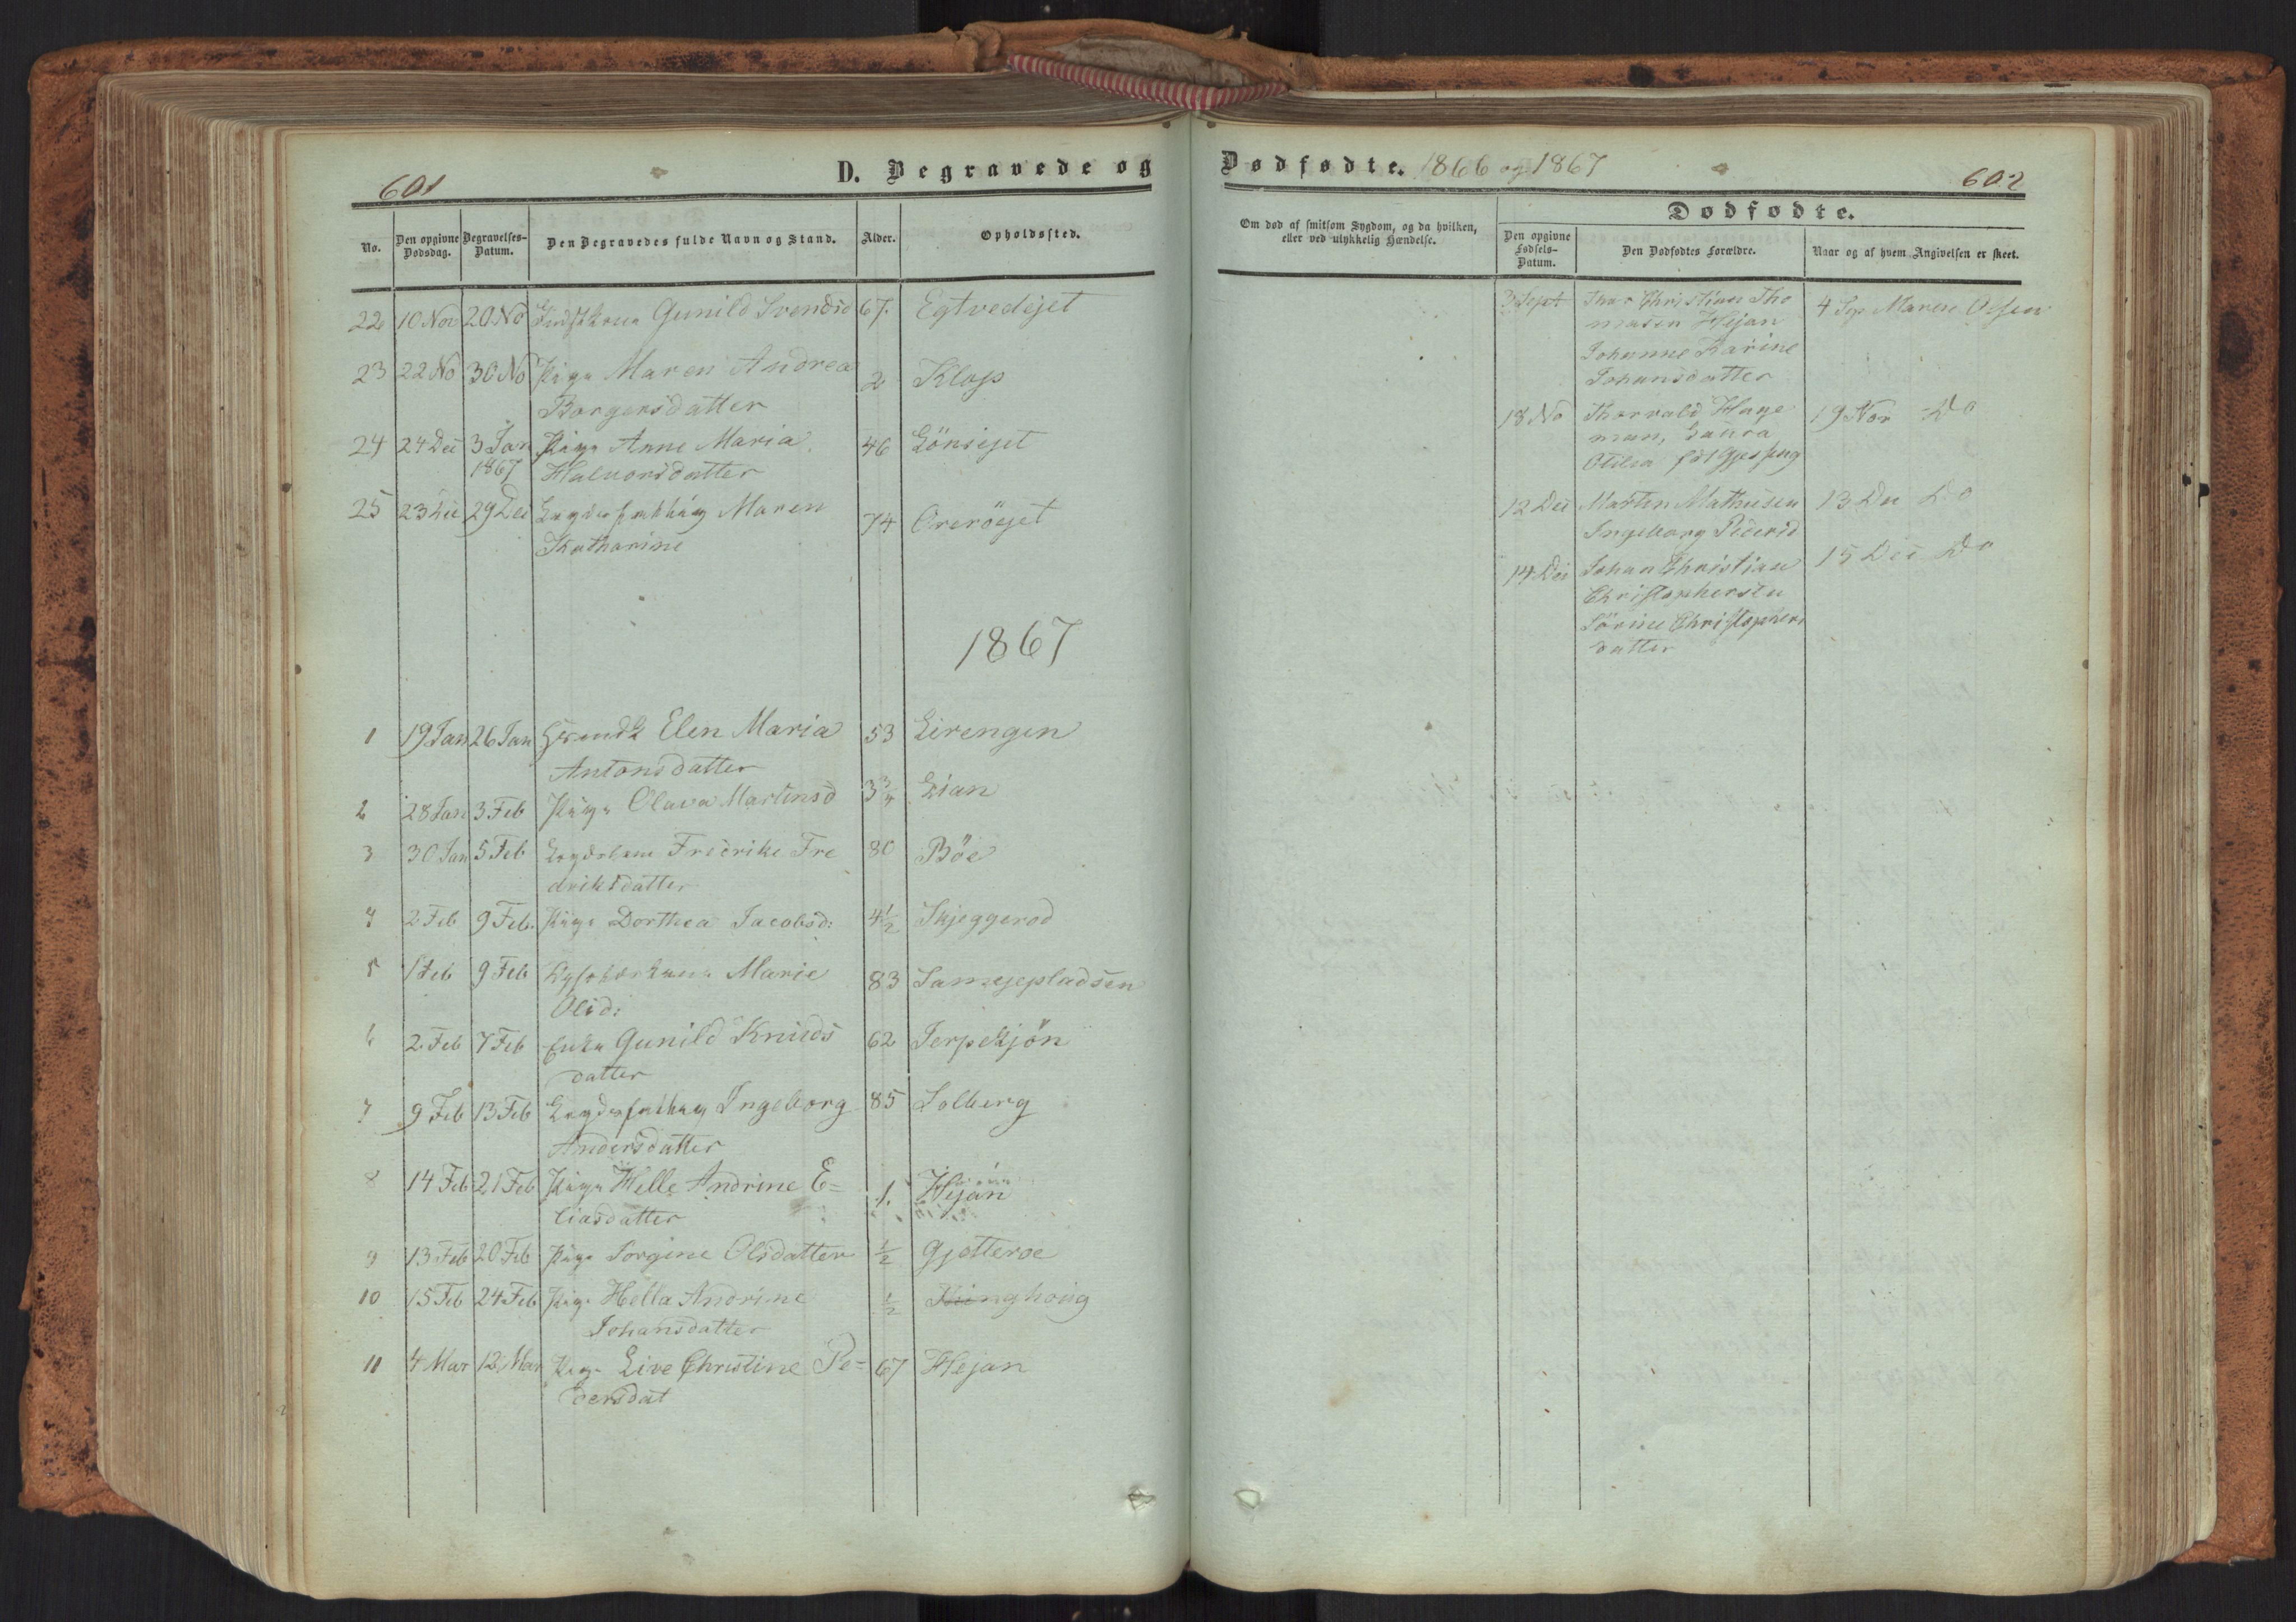 601
D. Begravede og
No.
Den opgivne Dødsdag.
Begravelses-Datum.
Den Begravedes fulde Navn og Stand.
Alder.
Opholdssted.
22 10 Nov 20 No Gunild Svendsd 67. Egtvedejet
23 22 No 30 No Pige Maren Andrea 2 Klop
Borgersdatter
24 24 Dec 3 Jan Pige Anne Maria 46 Lönsejet
1867 Halvorsdatter
25 23 Dec 29 Dec Maren 74
Katharine
1867
1 19 Jan 26 Jan Elen Maria 53 Eirengen
Antonsdatter
2 28 Jan 3 Feb Pige Olava Martinsd 3 3/4 Lian
3 30 Jan 5 Feb Fredrike Fre 80 Böe
driksdatter
4 2 Feb 9 Feb. Pige Dorthea Jacobsd: 4 1/2 Skjeggerod
5 1 Feb 9 Feb Marie 83 Samejepladsen
Olsd:
6 2 Feb 7 Feb Enke Gunild Knuds 62 Jerpekjön
datter
7 9 Feb 13 Feb Ingeborg 85 Solberg
Andersdatter
8 14 Feb 21 Feb Pige Helle Andrine E= 1. Hejan
liasdatter
9 13 Feb 20 Feb Pige Sorgine Olsdatter 1/2 Gjotteroe
10 15 Feb 24 Feb Pige Hella Andrine 1/2
Johansdatter
11 4 Mar 12 Mar Pige Live Christine Pe= 67 Hejan
dersdat
Dødfødte. 1866 og 1867
602
Om død af smitsom Sygdom, og da hvilken,
eller ved ulykkelig Hændelse.
Dødfødte.
Den opgivne Fødsels-Datum.
Den Dødfødtes Forældre.
Naar og af hvem Angivelsen er skeet.
3 Sept Christian Tho 4 Sep Maren Olsen
masen Hejan
Johanne Karine
Johansdatter
18 No Thorvald Hage 19 Nov Do
man, Laura
Otilia
12 Dec Martin Mathisen 13 Dec Do
Ingeborg Pedersd
14 Dec Johan Christian 15 Dec Do
Christophersen
Sörine Christophers
datter